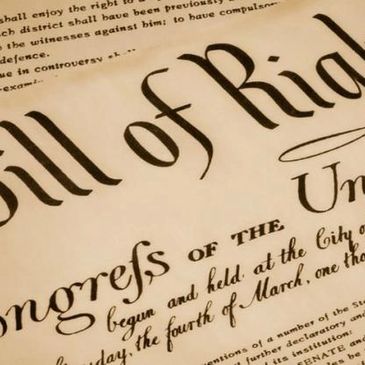 shall enjoy the right to a
ch district shall have been previously
the witnesses against him; to have compulsor
defence.
ue in controversy shall
-exami
Bill of Righ
Congreſs OF THE Un
begun and held at the City o
day, the fourth of March, one tho
entions of a number of the Sta
further declaratory and
its institution:
SENATE and